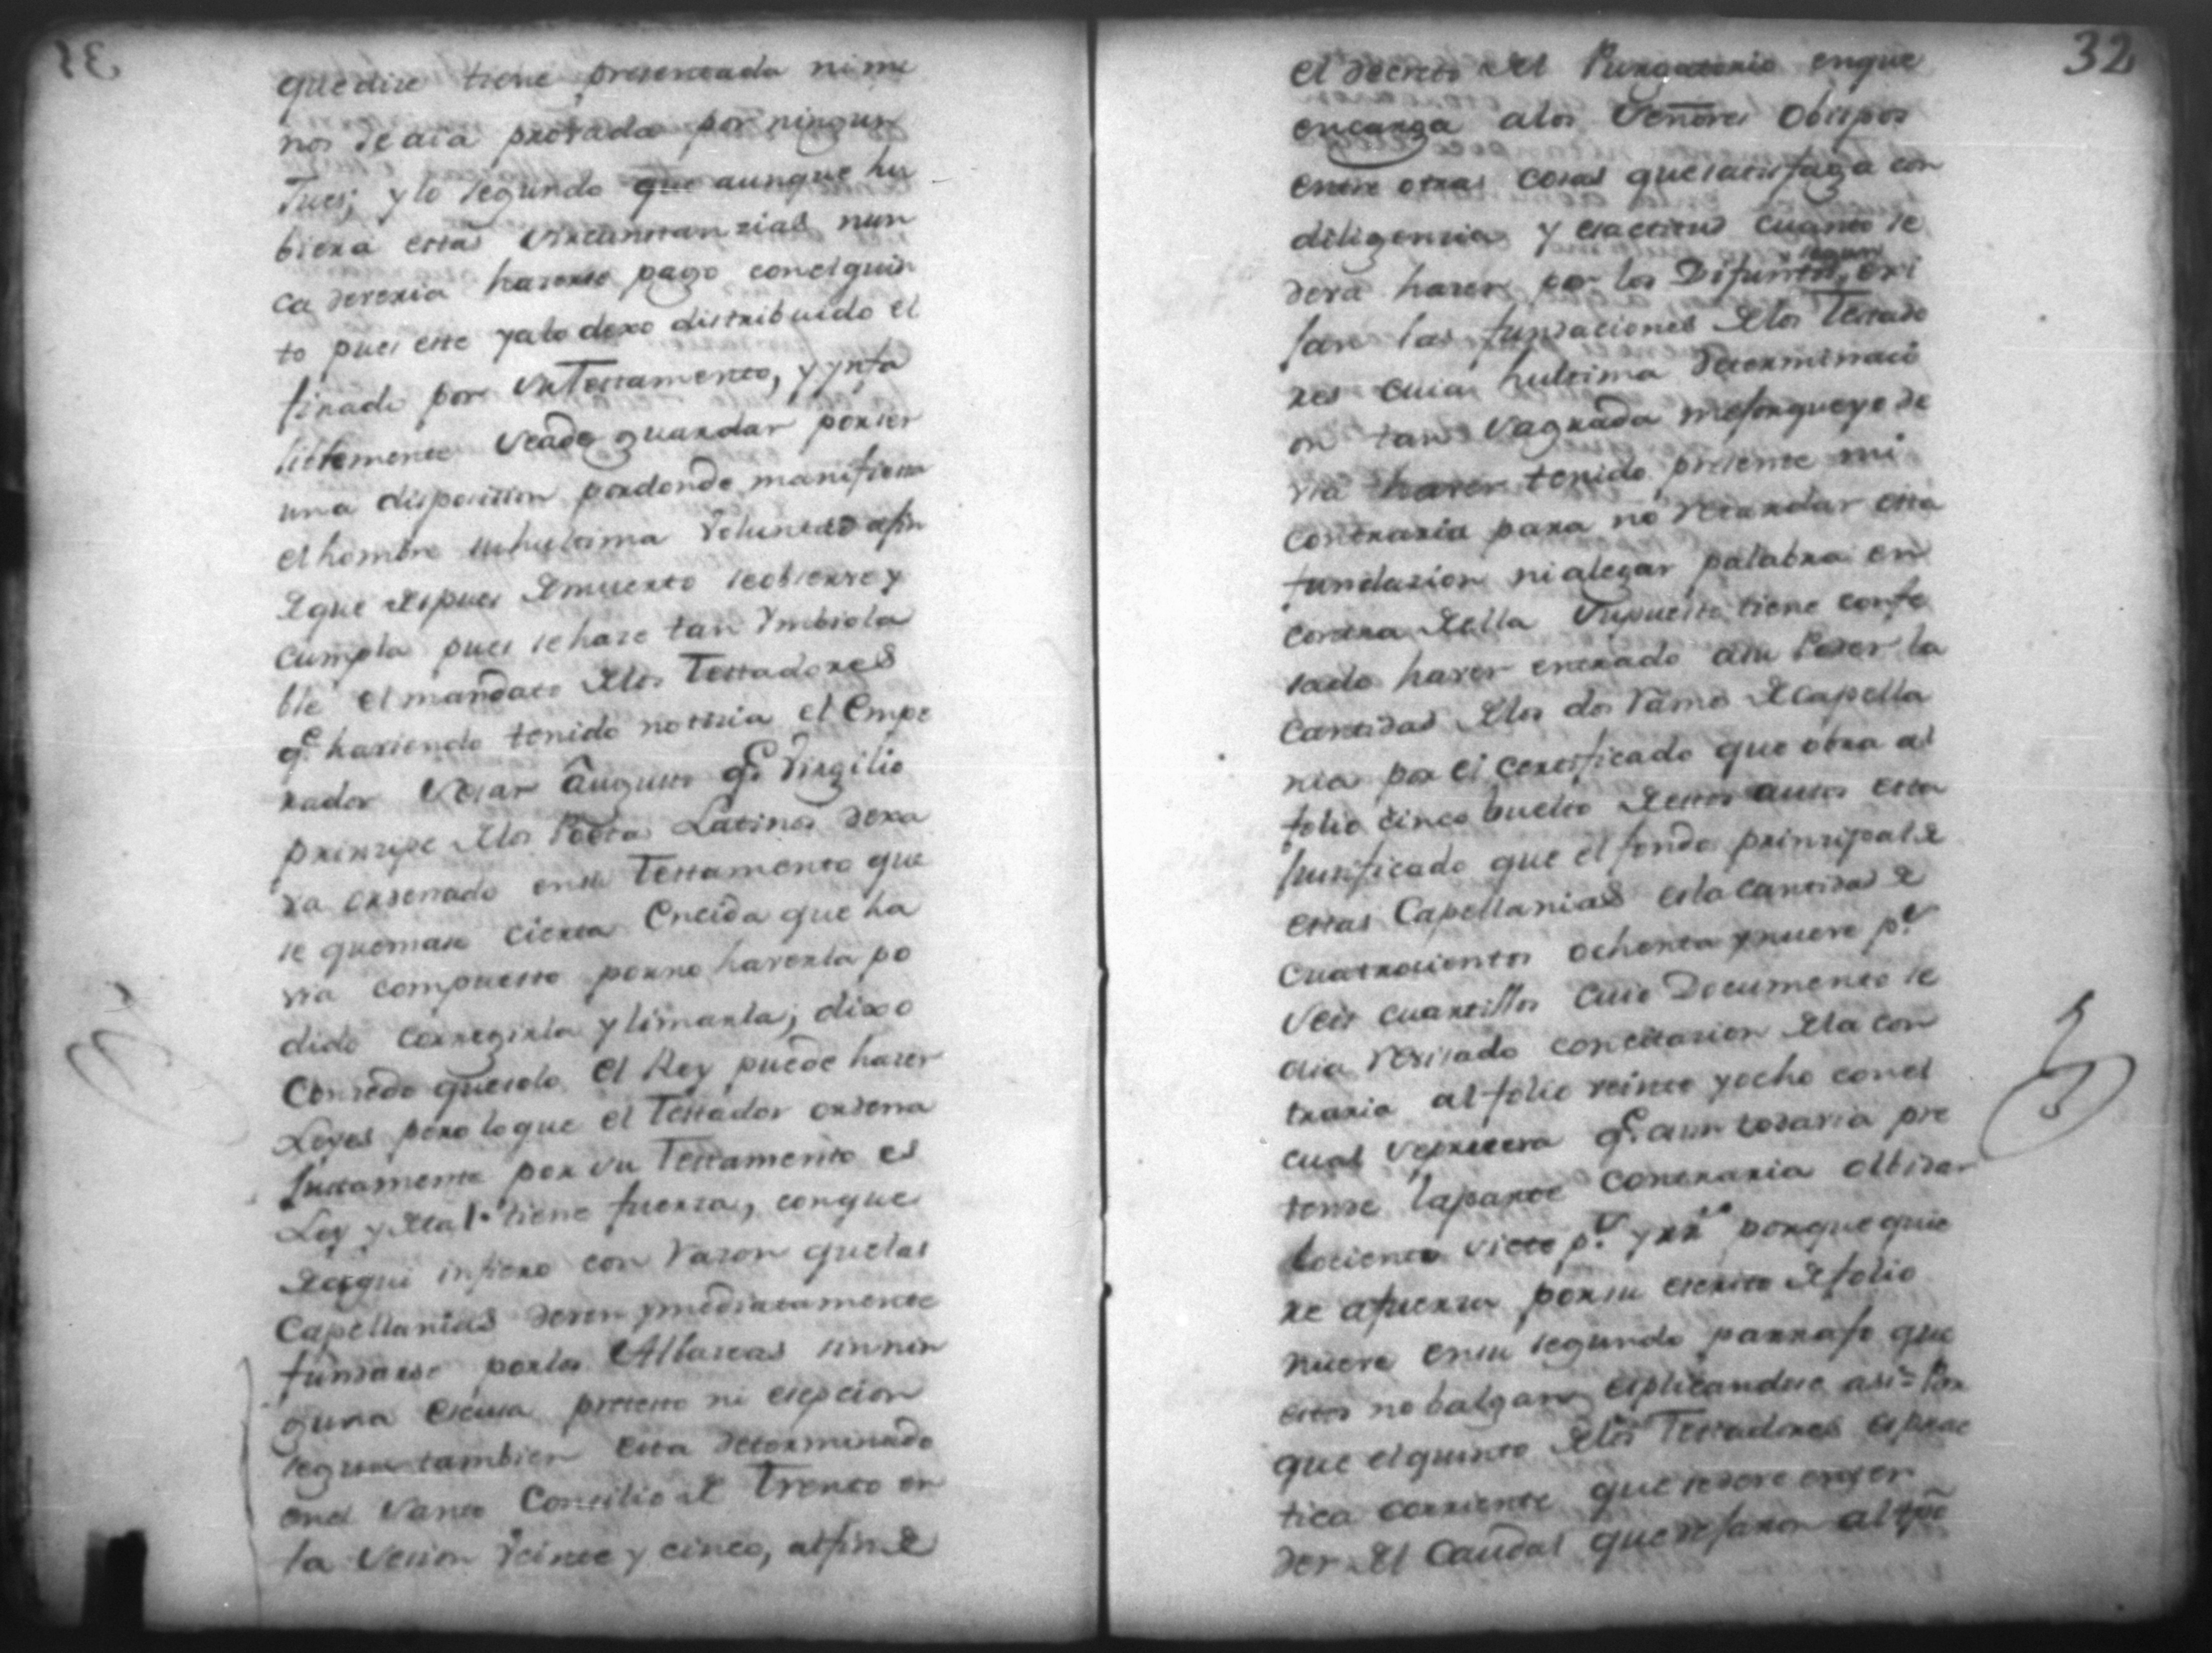 que dise tiene presentada ni me
nos se aia provada por ningun
Jues; y lo segundo que aunque hu
biera estas Circunstanzias nun
ca deveria hazerse pago con el quin
to pues este ya lo dexo distribuido el
finado por su Testamento, y ynfa
liblemente se a de guardar por ser
una disposision por donde manifiesta
el hombre su hultima Voluntad a fin
de que despues de muerto se observe y
cumpla pues se hase tan Ymbiola
ble el mandato de los Testadores
q.e haviendo tenido notizia el Empe
rador Cesar Augusto q.e Virgilio
prinzipe de los Poetas Latinos dexa
va ordenado en su Testamento que
se quemase cierta Eneida que ha
via compuesto por no haverla po
dido corregirla y limarla; dixo
Consedo que solo el Rey puede hazer
Leyes pero lo que el Testador ordena
Justamente por su Testamento es
Ley y de tal tiene fuerza, con que
de aqui infiero con Razon que las
Capellanias deven ymediatamente
fundarse por los Albaceas sin nin
guna escusa pretesto ni esepcion
segun tambien esta determinado
en el Santo Consilio de Trento en
la Sesion Veinte y cinco, al fin de
32
el decreto del Purgatorio en que
encarga a los Señores Obispos
entre otras cosas que satisfaga con
diligenzia y esactitud cuanto se
deva hazer por los Difuntos, segun
las fundaciones de los Testado
res cuia hultima determinaci
on tan Sagrada mejor que yo de
via haver tenido presente mi
contraria para no retardar esta
fundazion ni alegar palabra en
contra de ella Supuesto tiene confe
sado haver entrado a su Poder la
cantidad de los dos Ramos de Capella
nia por el certificado que obra al
folio cinco buelto de estos autos esta
Justificado que el fondo prinzipal de
estas Capellanias es la cantidad de
cuatrocientos ochenta y nueve p.s
Seis cuartillos cuio Documento se
dia Revisado con citazion de la con
traria al folio veinte y ocho con el
cual q.e aun todavia pre
tende la parte contraria olbidar
Docientos Siete p.s y r.s porque quie
re a fuerza por su escrito de folio
nueve en su segundo parrafo que
estos no balgan esplicandose asi = Por
que el quinto de los Testadores es prac
tica corriente que se deve enten
der del Caudal que dejaron al tpo